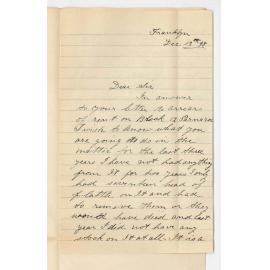 Franklyn
Dec 13th 98
Dear Sir
In answer
to your letter re arrears
of rent on Block 13
I wish to know what you
are going to do in the
matter for the last three
years I have not had anything
from it for two years I only
had seventeen head of
cattle on it and had
to remove them or they
would have died and last
year I did not have any
stock on it at all. It is a